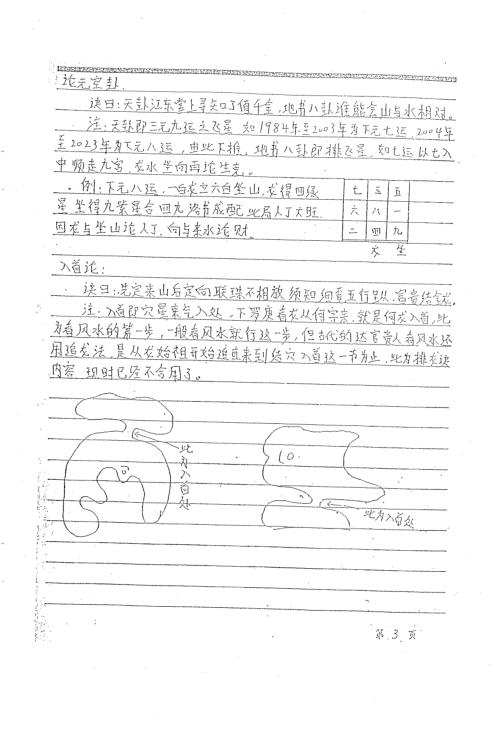 论元空卦.
诀曰:天卦江东掌上寻知了值千金,地书八卦谁能会山与水相对。
注:天卦即三元九运之飞星,如1984年至2003年为下元七运,2004年
至2023年为下元八运,由此下推,地书八卦即排飞星,如七运以七入
中顺走九宫,龙水坐向再论生克。
例:下元八运,一白龙立六白坐山,龙得四绿
星坐得九紫星合四九洛书成配,此局人丁大旺
因龙与坐山论人丁,向与来水论财。
七 三 五
六 八 一
二 四 九
龙 坐
入首论:
诀曰:先定来山后定向联珠不相放须知细覓五行踪,富貴结全龙.
注:入首即穴星来气入处,下罗庚看龙从何字来,就是何龙入首,此
为看风水的第一步,一般看风水就行这一步,但古代的达官贵人看风水还
用追龙法,是从龙始祖开始追直来到结穴入首这一节为止,此为排龙诀
内容,现时已经不合用了。
此为入首处
此为入首处
第 3 页